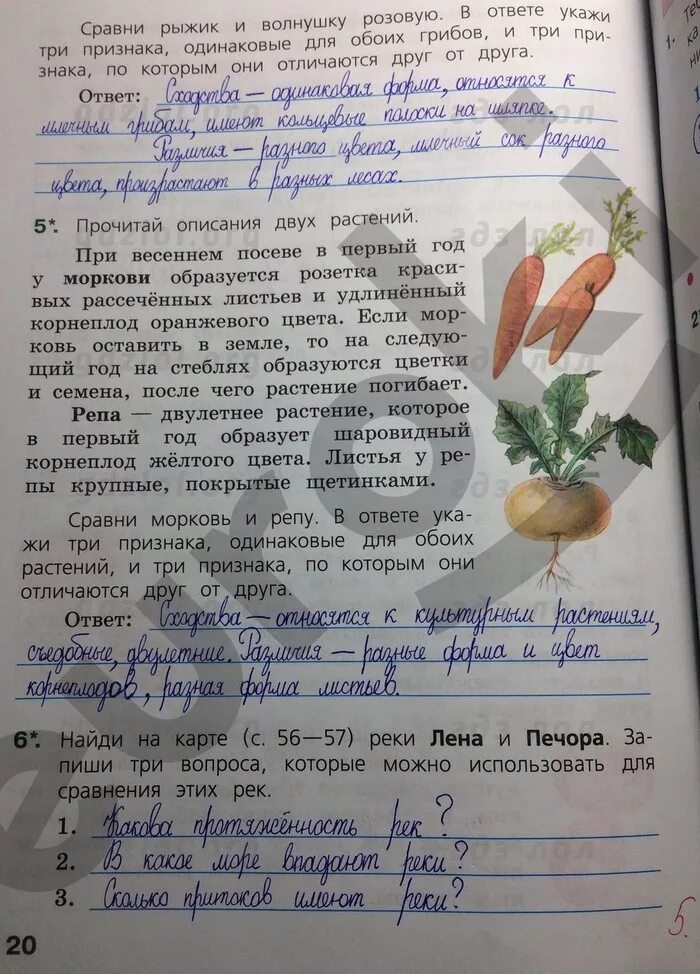 Сравни рыжик и волнушку розовую. В ответе укажи
три признака, одинаковые для обоих грибов, и три при-
знака, по которым они отличаются друг от друга.
Ответ: Сходства — одинаковая форма, относятся к
млечным грибам, имеют кольцевые полоски на шляпке.
Различия — разного цвета, млечный сок разного
цвета, произрастают в разных лесах.
5*. Прочитай описания двух растений.
При весеннем посеве в первый год
у моркови образуется розетка краси-
вых рассечённых листьев и удлинённый
корнеплод оранжевого цвета. Если мор-
ковь оставить в земле, то на следую-
щий год на стеблях образуются цветки
и семена, после чего растение погибает.
Репа — двулетнее растение, которое
в первый год образует шаровидный
корнеплод жёлтого цвета. Листья у ре-
пы крупные, покрытые щетинками.
Сравни морковь и репу. В ответе ука-
жи три признака, одинаковые для обоих
растений, и три признака, по которым они
отличаются друг от друга.
Ответ: Сходства — относятся к культурным растениям,
съедобные, двулетние. Различия — разные форма и цвет
корнеплодов, разная форма листьев.
6*. Найди на карте (с. 56—57) реки Лена и Печора. За-
пиши три вопроса, которые можно использовать для
сравнения этих рек.
1. Какова протяжённость рек?
2. В какое море впадают реки?
3. Сколько притоков имеют реки?
20
5.
euroki